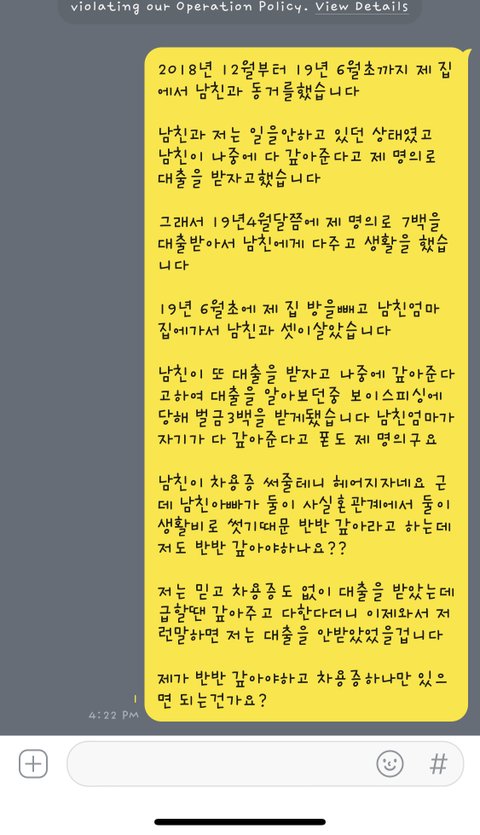 violating our Operation Policy. View Details
2018년 12월부터 19년 6월초까지 제 집
에서 남친과 동거를했습니다
남친과 저는 일을안하고 있던 상태였고
남친이 나중에 다 갚아준다고 제 명의로
대출을 받자고했습니다
그래서 19년4월달쯤에 제 명의로 7백을
대출받아서 남친에게 다주고 생활을 했습
니다
19년 6월초에 제 집 방을빼고 남친엄마
집에가서 남친과 셋이살았습니다
남친이 또 대출을 받자고 나중에 갚아준다
고하여 대출을 알아보던중 보이스피싱에
당해 벌금3백을 받게됐습니다 남친엄마가
자기가 다 갚아준다고 폰도 제 명의구요
남친이 차용증 써줄테니 헤어지자네요 근
데 남친아빠가 둘이 사실혼관계에서 둘이
생활비로 썻기때문 반반 갚아라고 하는데
저도 반반 갚아야하나요??
저는 믿고 차용증도 없이 대출을 받았는데
급할땐 갚아주고 다한다더니 이제와서 저
런말하면 저는 대출을 안받았었을겁니다
제가 반반 갚아야하고 차용증하나만 있으
면 되는건가요?
1
4:22 PM
#